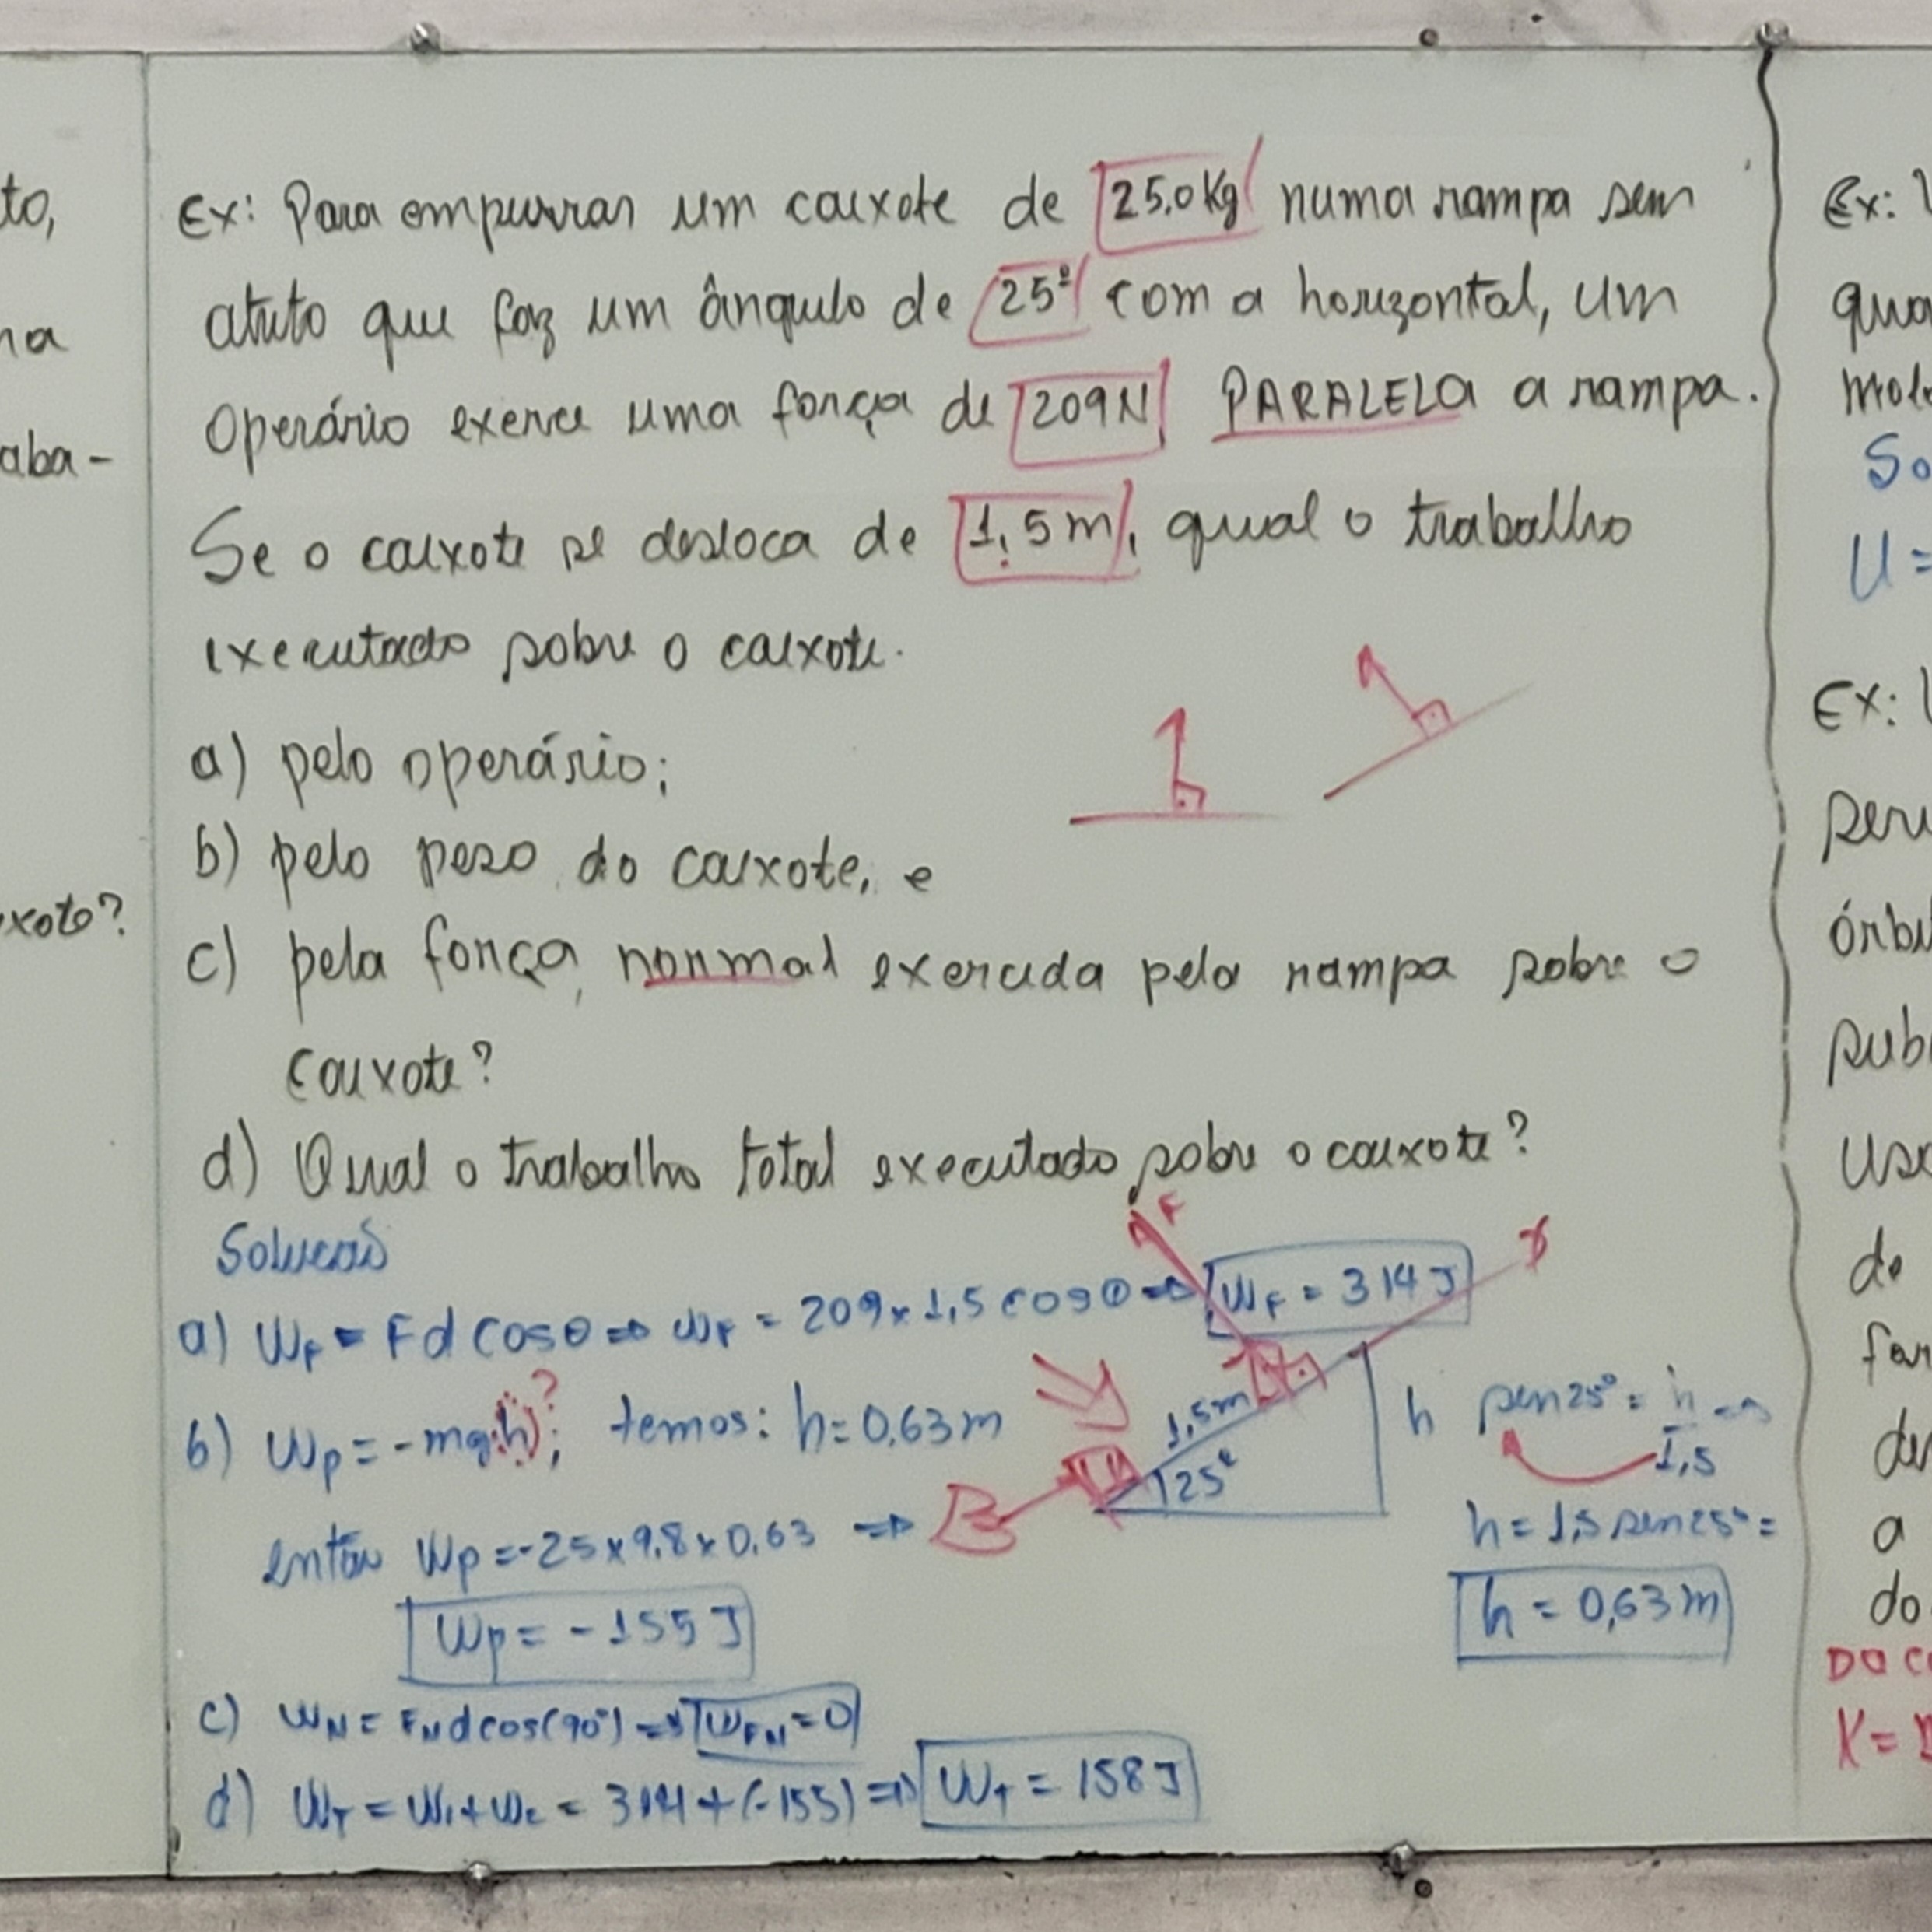 to,
na
aba-
xote?
Ex: Para empurrar um caixote de 25,0 Kg numa rampa sem
atrito que faz um ângulo de 25° com a horizontal, um
Operário exerce uma força de 209N PARALELA a rampa.
Se o caixote se desloca de 1,5 m, qual o trabalho
executado sobre o caixote.
a) pelo operário;
b) pelo peso do caixote, e
c) pela força normal exercida pela rampa sobre o
caixote?
d) Qual o trabalho total executado sobre o caixote?
Solução
a) WF = Fd cosθ => WF = 209x1,5 cos0 => WF = 314 J
b) Wp = -mgh; ? temos: h = 0,63m
então Wp = -25x9,8x0,63 =>
Wp = -155 J
c) WN = FNdcos(90°) => WFN = 0
d) WT = W1 + W2 = 314 + (-155) => WT = 158 J
F
x
1,5m
25°
h
sen25° = h =>
1,5
h = 1,5 sen25° =
h = 0,63 m
Ex:
qua
mol
So
U =
Ex:
órbi
sub
de
a
do
K =